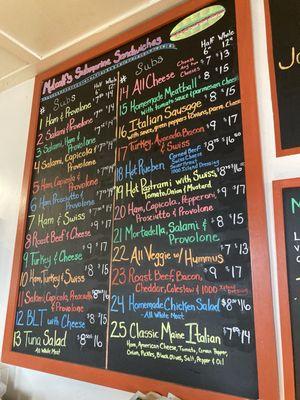 Metcalf's Submarine Sandwiches
# Subs Half 6" Whole 12"
1 Ham & Provolone
2 Salami & Provolone
3 Salami, Ham & Provolone
4 Salami, Capicola & Provolone
5 Ham, Capicola & Provolone
6 Ham, Prosciutto & Provolone
7 Ham & Swiss
8 Roast Beef & Cheese
9 Turkey & Cheese
10 Ham, Turkey & Swiss
11 Salami, Capicola, Prosciutto & Provolone
12 BLT with Cheese
13 Tuna Salad
All White Meat
# Subs Half 6" Whole 12"
14 All Cheese
15 Homemade Meatball $8 $15
with tomato sauce & parmesan cheese
16 Italian Sausage $8 $15
with sauce, green peppers & onions, parm cheese
17 Turkey, Avocado, Bacon & Swiss $9 $17
18 Hot Reuben
19 Hot Pastrami with Swiss
Tomato, Onion & Mustard
20 Ham, Capicola, Pepperoni, Prosciutto & Provolone $9 $17
21 Mortadella, Salami & Provolone $8 $15
22 All Veggie w/ Hummus $7 $13
23 Roast Beef, Bacon, Cheddar, Coleslaw & 1000 Island $9 $17
24 Homemade Chicken Salad
All White Meat
25 Classic Maine Italian
Ham, American Cheese, Tomato, Green Pepper,
Onion, Pickles, Black Olives, Salt, Pepper & Oil